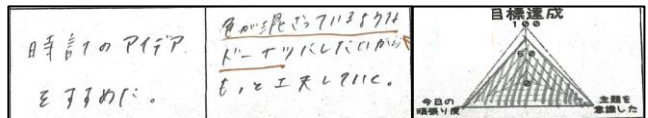 時計のアイデア
をすすめた。
色が混ざっているような
ドーナツにしたいから
もっと工夫していく。
目標達成
100
50
0
今日の
頑張り度
主題を
意識した